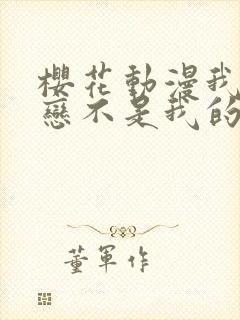 櫻花動漫我
戀不是我的
董軍作